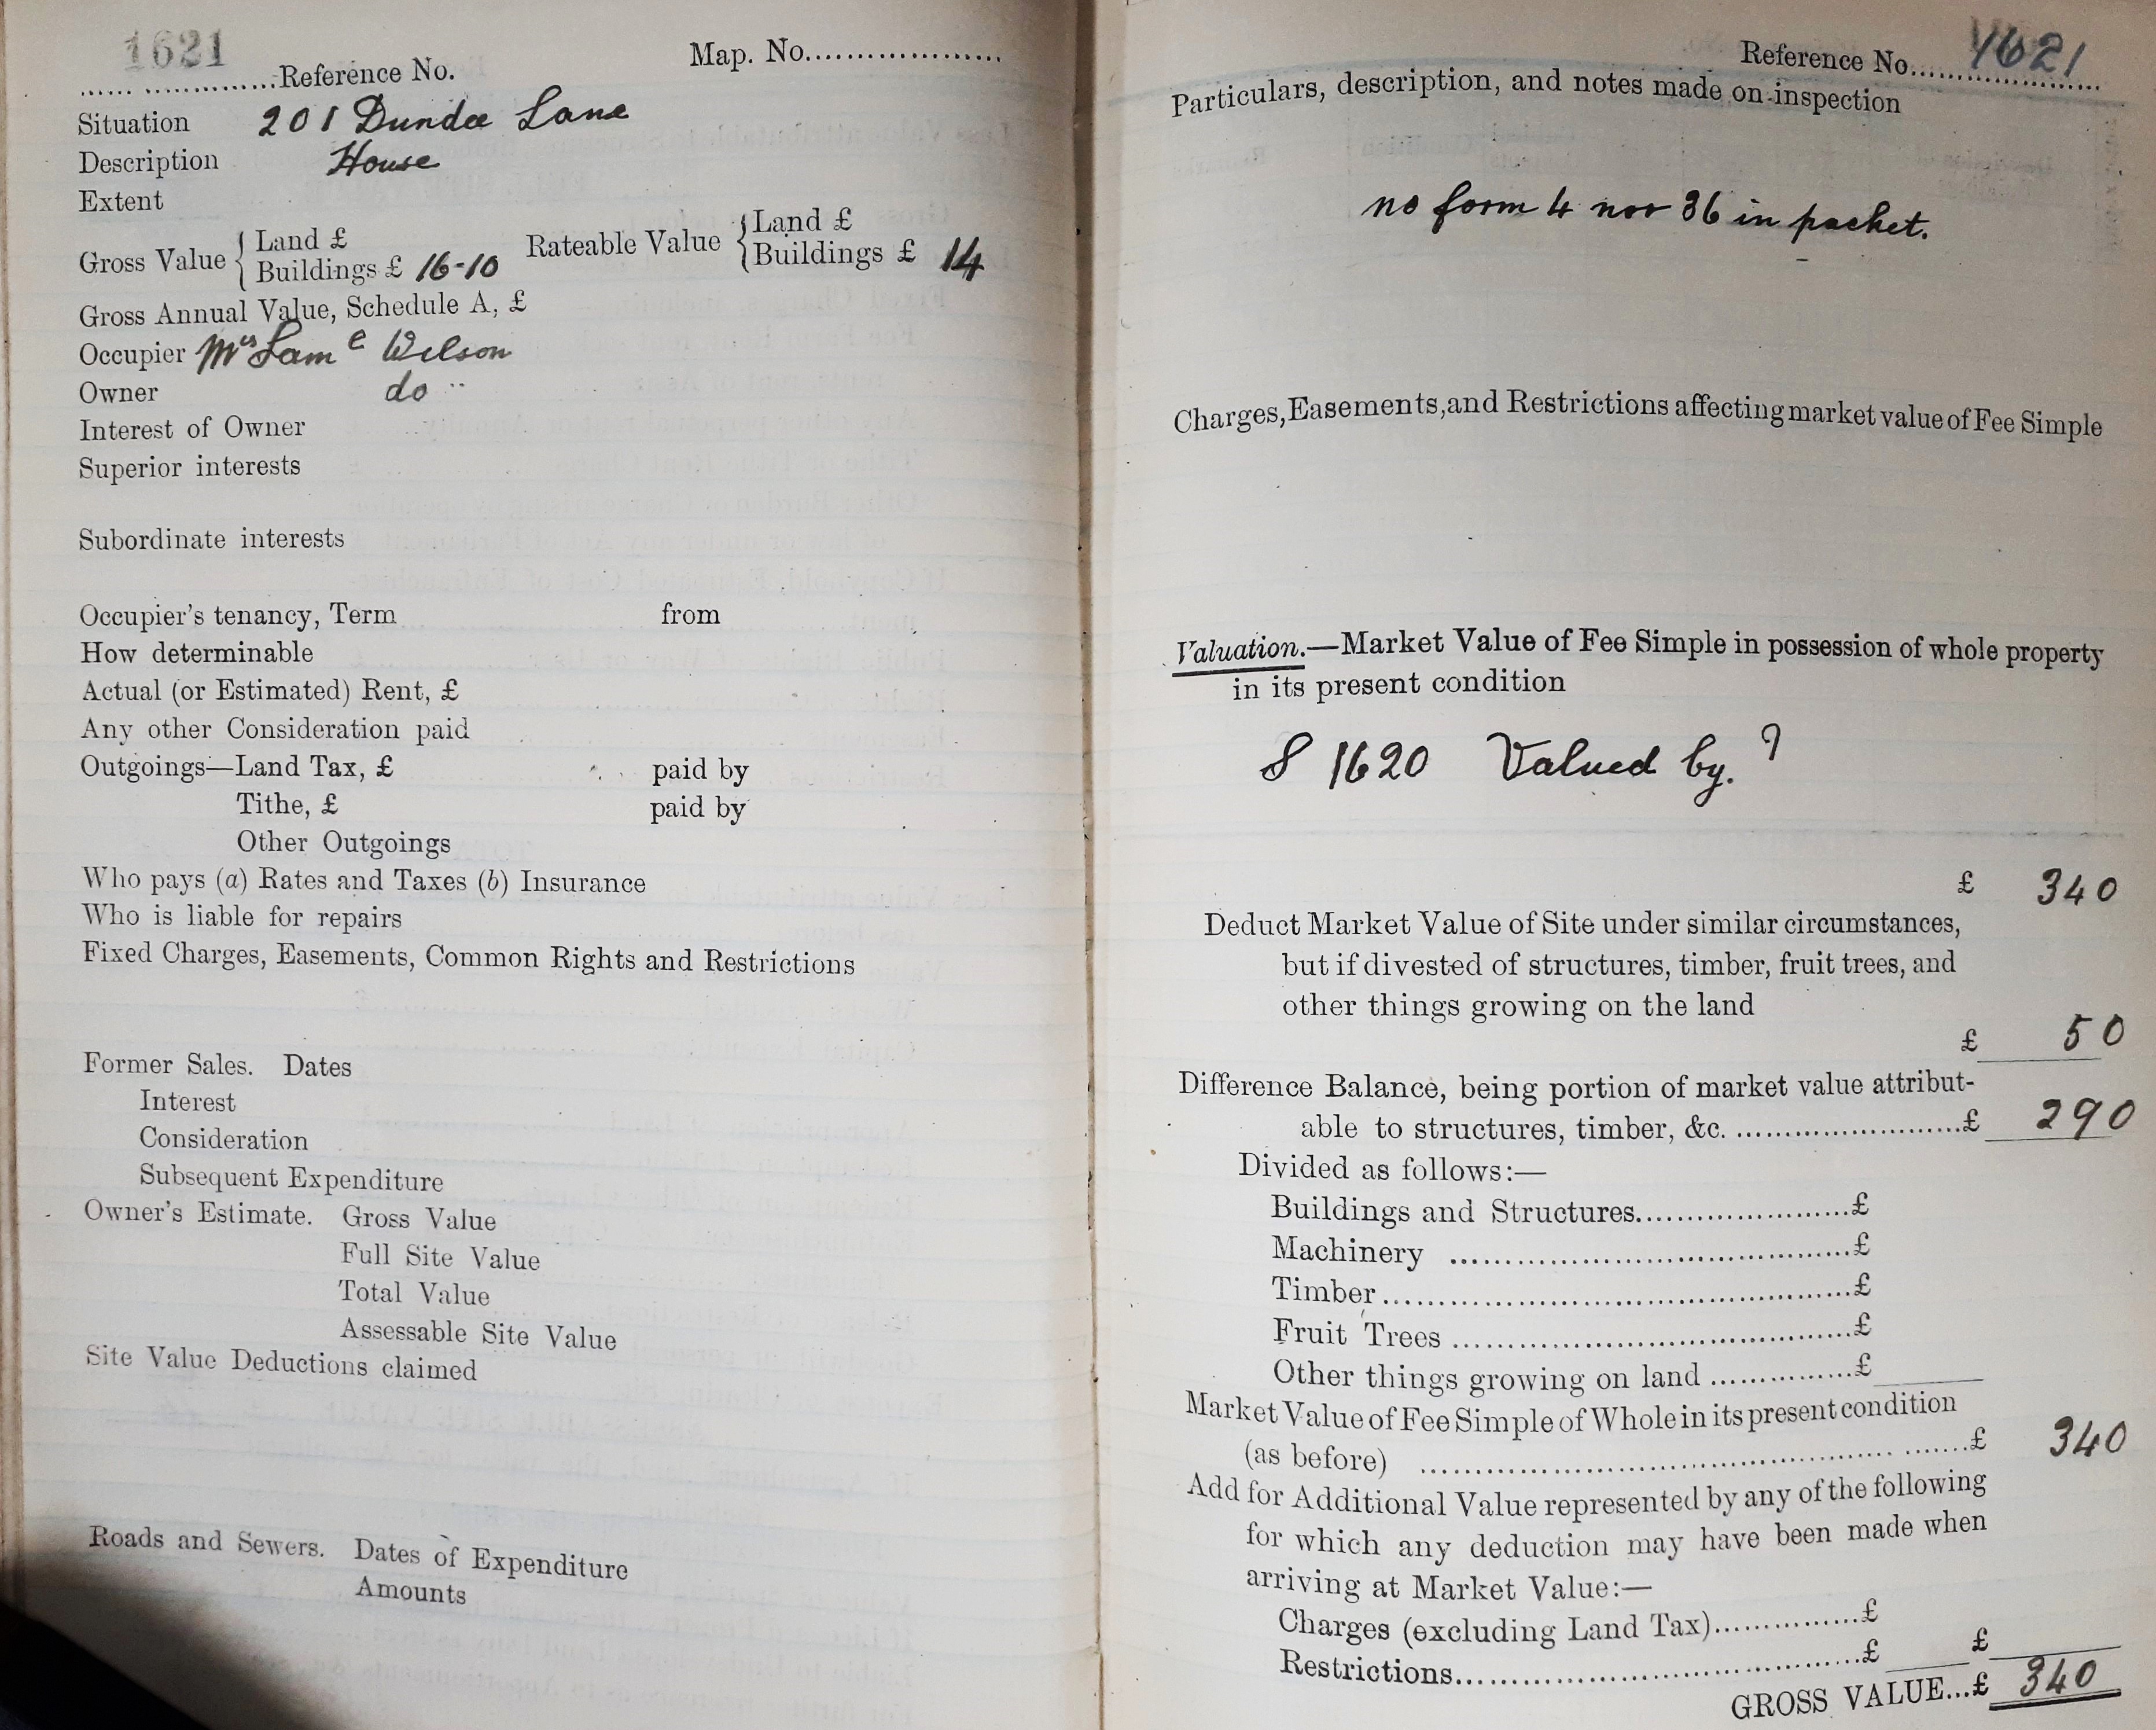 1621
Reference No. Map. No.
Situation 201 Dundee Lane
Description House
Extent
Gross Value { Land £
Buildings £ 16-10 Rateable Value { Land £
Buildings £ 14
Gross Annual Value, Schedule A, £
Occupier Mrs Sam e Wilson
Owner do
Interest of Owner
Superior interests
Subordinate interests
Occupier's tenancy, Term from
How determinable
Actual (or Estimated) Rent, £
Any other Consideration paid
Outgoings—Land Tax, £ paid by
Tithe, £ paid by
Other Outgoings
Who pays (a) Rates and Taxes (b) Insurance
Who is liable for repairs
Fixed Charges, Easements, Common Rights and Restrictions
Former Sales. Dates
Interest
Consideration
Subsequent Expenditure
Owner's Estimate. Gross Value
Full Site Value
Total Value
Assessable Site Value
Site Value Deductions claimed
Roads and Sewers. Dates of Expenditure
Amounts
Reference No. 1621
Particulars, description, and notes made on inspection
no form 4 nor 36 in packet.
Charges, Easements, and Restrictions affecting market value of Fee Simple
Valuation.—Market Value of Fee Simple in possession of whole property
in its present condition
S 1620 Valued by. ?
£ 340
Deduct Market Value of Site under similar circumstances,
but if divested of structures, timber, fruit trees, and
other things growing on the land
£ 50
Difference Balance, being portion of market value attribut-
able to structures, timber, &c. £ 290
Divided as follows:—
Buildings and Structures £
Machinery £
Timber £
Fruit Trees £
Other things growing on land £
Market Value of Fee Simple of Whole in its present condition
(as before) £ 340
Add for Additional Value represented by any of the following
for which any deduction may have been made when
arriving at Market Value:—
Charges (excluding Land Tax) £
Restrictions £ £
GROSS VALUE...£ 340